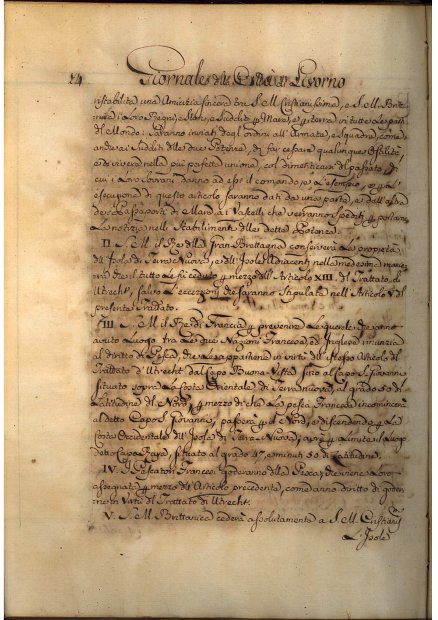 24 Giornale della Città di Livorno
ristabilita una Amicizia sincera tra S. M. Cristianissima, e S. M. Britt
i Loro Regni, e Stati, e Sudditi Mare, e terra in tutte le parti
del Mondo: Saranno inviati degl'ordini all'Armate, e Squadre, come
ancora ai Sudditi delle due Potenze, di far cessare qualunque Ostilità
e di vivere nella più perfetta unione, col dimenticarsi del passato, di
cui i Loro Sovrani danno ad essi il comando, e L'esempio, e
esecuzione di questo articolo saranno dati da una parte, e dall'altra
dei Passaporti di Mare ai Vascelli che verranno spediti portare
La notizia nelli Stabilimenti delle dette Potenze.
II. S. M. il Re della Gran Brettagna conserverà La proprietà
dell'Isole di Terra Nuova, e dell'Isole Adiacenti nella medesima maniera
che il tutto Le fù ceduto mezzo dell'Articolo XIII del Trattato di
Utrecht, salvo L'eccezioni che saranno Stipulate nell'Articolo V del
presente Trattato.
III. S. M. il Re di Francia prevenire Le querele che anno
avuto Luogo tra Le due Nazioni Francese, ed Inglese rinunzia
al diritto di Pesca, che Le appartiene in virtù dell'istesso Articolo del
Trattato d'Utrecht dal Capo Buona-Vista sino al Capo S. Giovanni
situato sopra La Costa Orientale di Terranuova, al grado 50 di
Latitudine del Nord, mezzo di che La pesca Francese incomincerà
al detto Capo S. Giovanni, passerà al Nord, e discendendo La
Costa Occidentale dell'Isole di Terra Nuova, avrà Limite il Luogo
detto Capo Raye, situato al grado 47, e minuti 50 di Latitudine.
IV. I Pescatori Francesi goderanno della Pesca, che viene Loro
assegnata mezzo dell'Articolo precedente, come anno diritto di goder
ne in Virtù del Trattato di Utrecht.
V. S. M. Brittanica cederà assolutamente a S. M. Cristianis
L'Isole